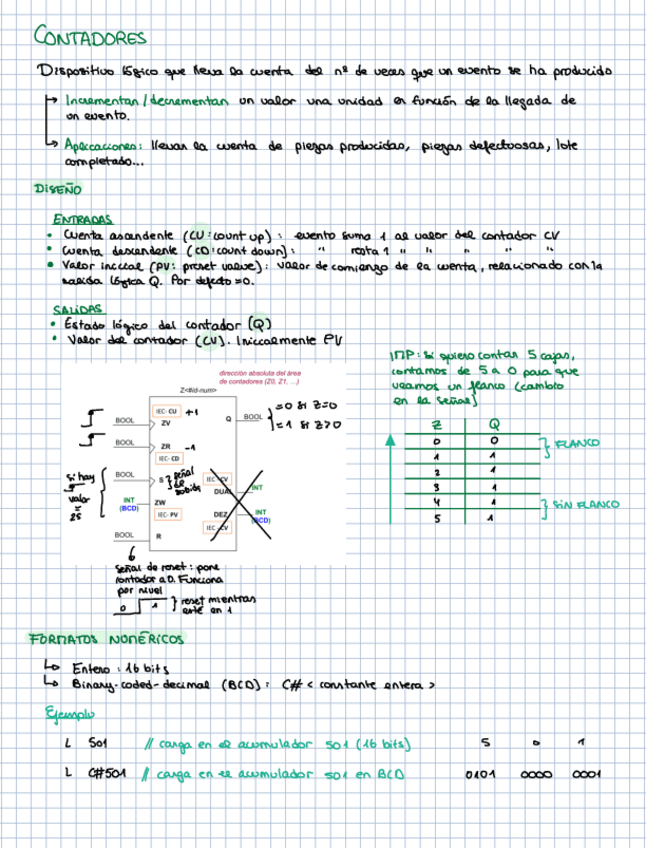 CONTADORES
Dispositivo lógico que lleva la cuenta del nº de veces que un evento se ha producido
Incrementan / decrementan un valor una unidad en función de la llegada de
un evento.
Aplicaciones: llevan la cuenta de piezas producidas, piezas defectuosas, lote
completado...
DISEÑO
ENTRADAS
• Cuenta ascendente (CU: count up) : evento suma 1 al valor del contador CV
• Cuenta descendente (CD: count down) : " resta 1 " " " " "
• Valor inicial (PV: preset value) : valor de comienzo de la cuenta, relacionado con la
salida lógica Q. Por defecto =0.
SALIDAS
• Estado lógico del contador (Q)
• Valor del contador (CV). Inicialmente PV
IMP: Si quiero contar 5 cajas,
contamos de 5 a 0 para que
veamos un flanco (cambio
en la señal)
dirección absoluta del área
de contadores (Z0, Z1, ...)
Z<Bid-num>
BOOL IEC-CU +1 ZV Q BOOL =0 si Z=0
=1 si Z>0
BOOL ZR -1
IEC-CD
si hay valor = 25
BOOL S señal de subida
IEC-CV DUAL INT
INT (BCD) ZW
IEC-PV
DEZ INT (BCD)
IEC-CV
BOOL R
Señal de reset: pone
contador a 0. Funciona
por nivel
0 1 reset mientras
esté en 1
Z Q
0 0
1 1
FLANCO
2 1
3 1
4 1
5 1
SIN FLANCO
FORMATOS NUMÉRICOS
Entero : 16 bits
Binary-coded-decimal (BCD) : C# < constante entera >
Ejemplo
L 501 // carga en el acumulador 501 (16 bits) 5 0 1
L C#501 // carga en el acumulador 501 en BCD 0101 0000 0001